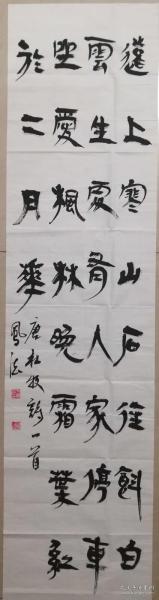 遠上寒山石徑斜白
雲生處有人家停車
坐愛楓林晚霜葉紅
於二月華
唐杜牧詩一首